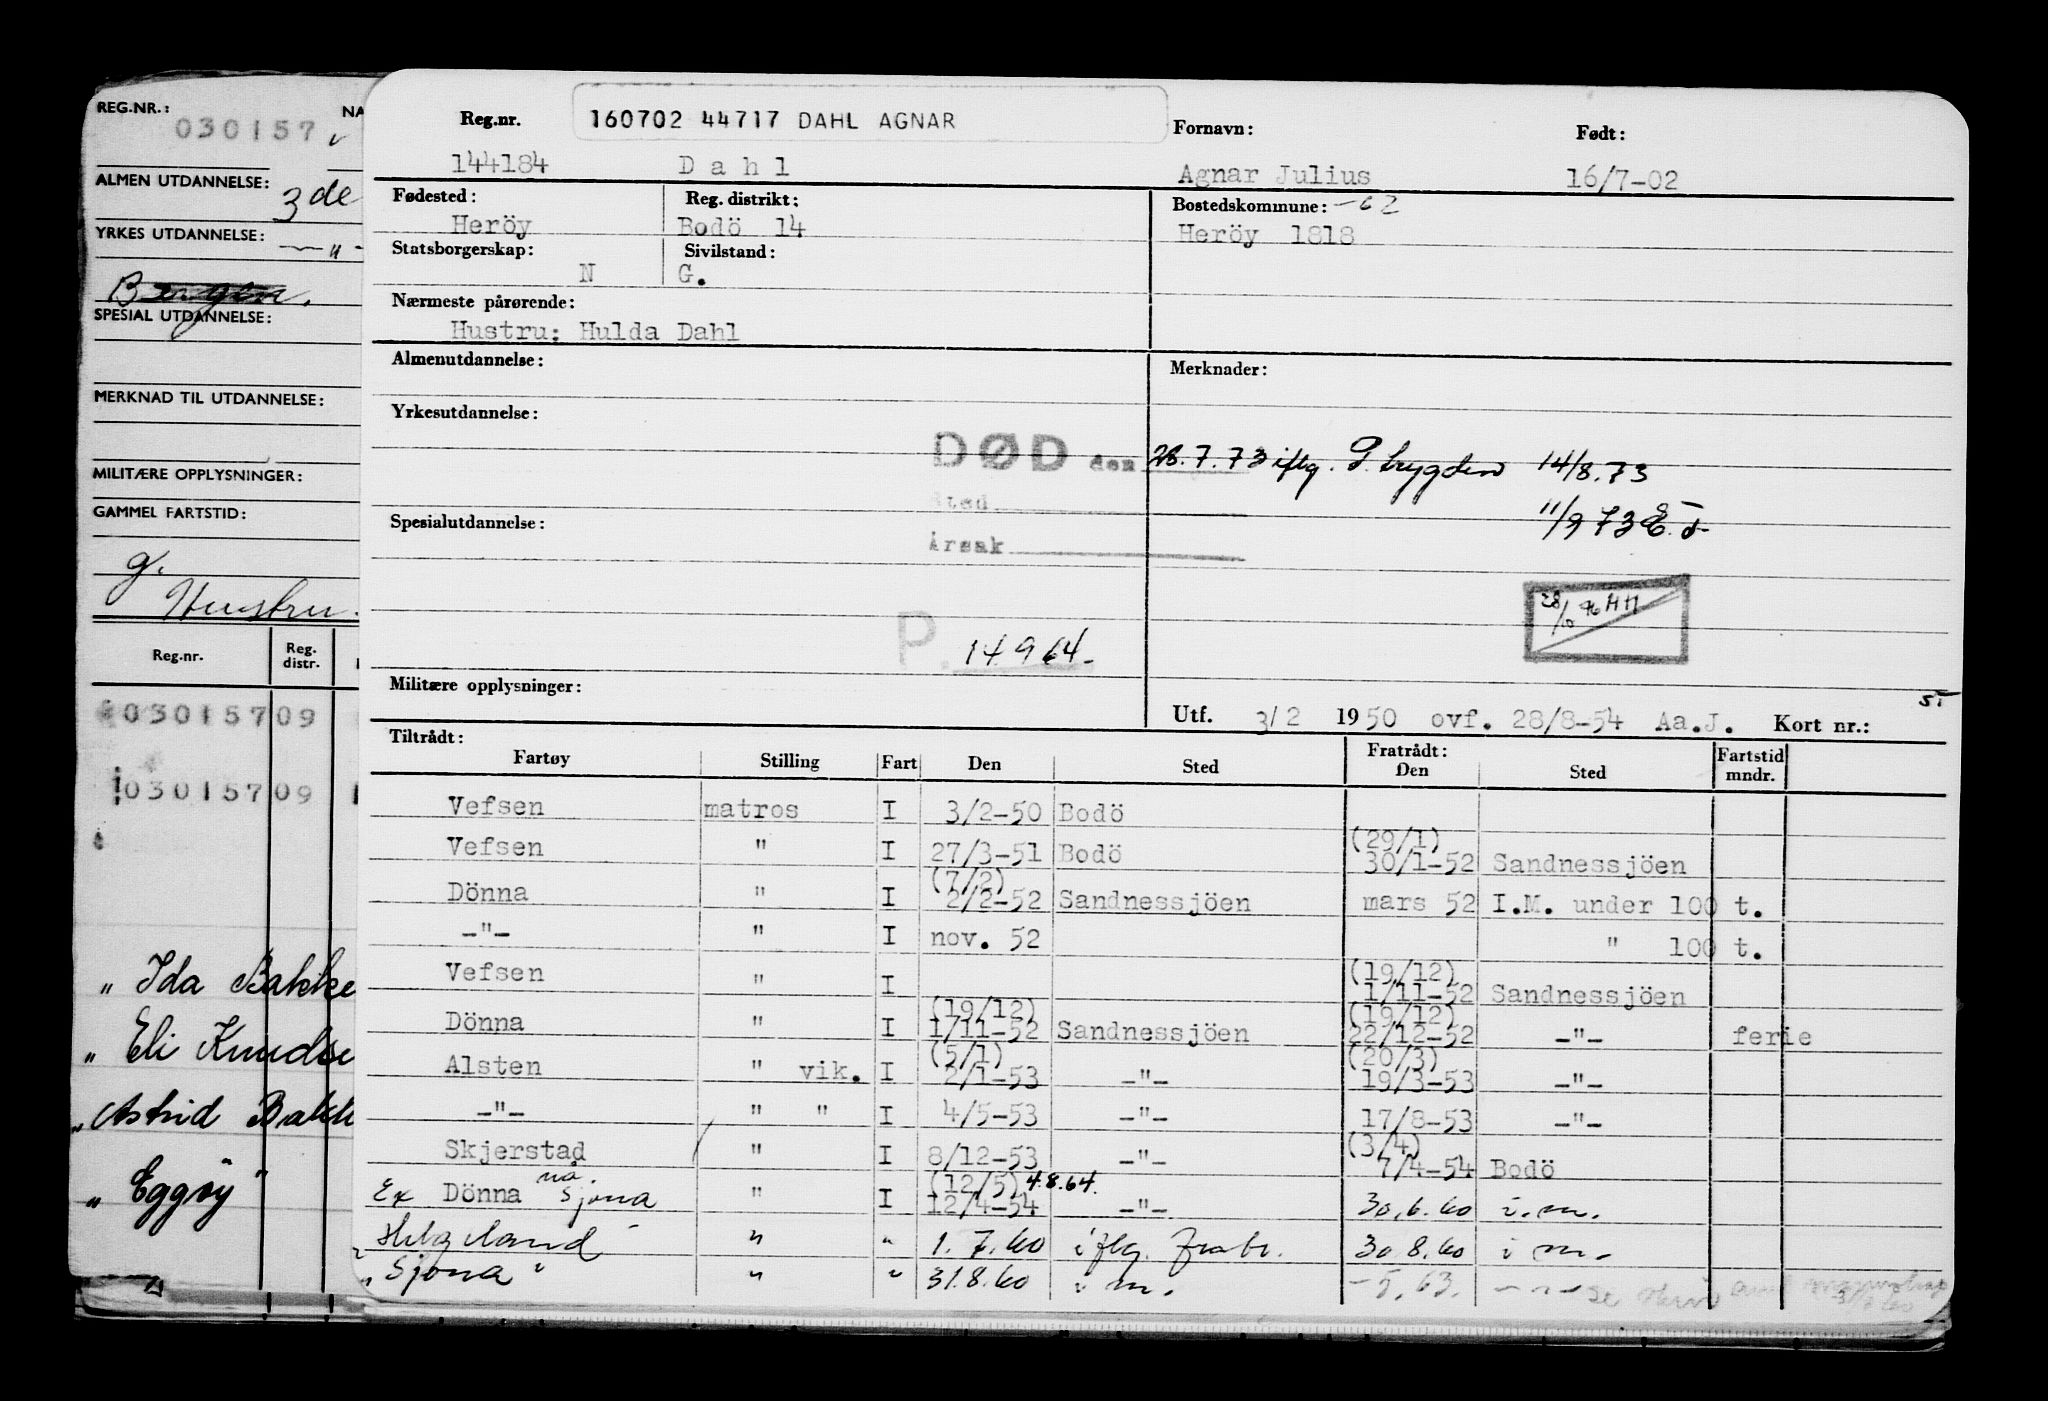 REG.NR.: NA
030157
ALMEN UTDANNELSE:
3de
YRKES UTDANNELSE:
—"-
Bergen.
SPESIAL UTDANNELSE:
MERKNAD TIL UTDANNELSE:
MILITÆRE OPPLYSNINGER:
GAMMEL FARTSTID:
g.
Hustru.
Reg.nr. Reg. distr.
03015709
03015709
„ Ida Bakke
„ Eli Knudse
„ Astrid Bakk
„ Eggøy"
Reg.nr. 160702 44717 DAHL AGNAR Fornavn: Født:
144184 Dahl Agnar Julius 16/7-02
Fødested: Reg. distrikt: Bostedskommune: -62
Heröy Bodö 14 Heröy 1818
Statsborgerskap: Sivilstand:
N G.
Nærmeste pårørende:
Hustru: Hulda Dahl
Almenutdannelse: Merknader:
Yrkesutdannelse:
DØD den 28.7.73 iflg. P.trygden 14/8.73
Sted
Spesialutdannelse: 11/9 73
Årsak
28/10 76 HH
P. 14.9.64.
Militære opplysninger:
Utf. 3/2 1950 ovf. 28/8-54 Aa.J. Kort nr.: 5
Tiltrådt: Fratrådt:
Fartøy Stilling Fart Den Sted Den Sted Fartstid mndr.
Vefsen matros I 3/2-50 Bodö
(29/1)
Vefsen " I 27/3-51 Bodö 30/1-52 Sandnessjöen
(7/2)
Dönna " I 2/2-52 Sandnessjöen mars 52 I.M. under 100 t.
-"- " I nov. 52 " 100 t.
(19/12)
Vefsen " I 1/11-52 Sandnessjöen
(19/12) (19/12)
Dönna " I 1/11-52 Sandnessjöen 22/12-52 -"- ferie
(5/1) (20/3)
Alsten " vik. I 2/1-53 -"- 19/3-53 -"-
-"- " " I 4/5-53 -"- 17/8-53 -"-
(3/4)
Skjerstad " I 8/12-53 -"- 7/4-54 Bodö
nå. (12/5) 4.8.64.
Ex Dönna Sjona " I 12/4-54 -"- 30.6.60 i.m.
Helgeland " " 1.7.60 iflg. fratr. 30.8.60 i m.
„Sjona" " " 31.8.60 i m. -5.63. -"-